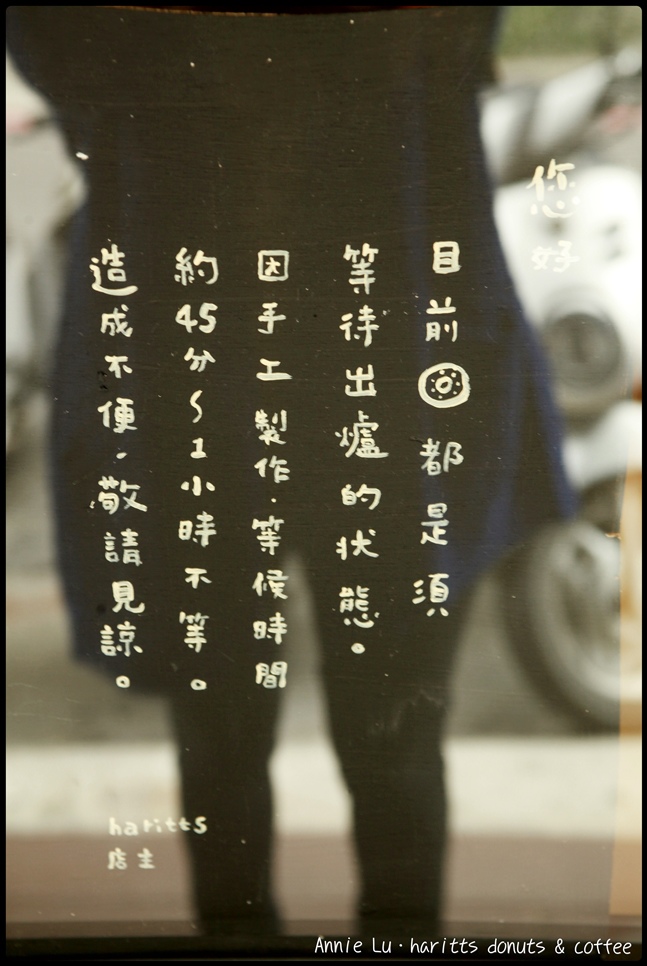 您好
目前都是須
等待出爐的狀態。
因手工製作,等候時間
約45分~1小時不等。
造成不便,敬請見諒。
haritts
店主
Annie Lu · haritts donuts & coffee